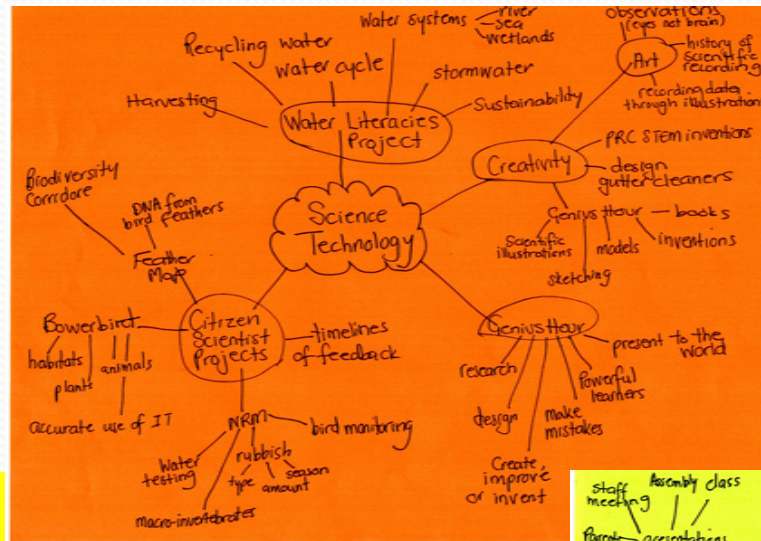 Science
Technology
Water Literacies
Project
Harvesting
Recycling water
water cycle
Water systems
river
sea
wetlands
stormwater
Sustainability
Creativity
Art
observations
(eyes not brain)
history of
scientific
recording
recording data
through illustration
PRC STEM inventions
design
gutter cleaners
Genius Hour
books
inventions
models
sketching
Scientific
illustrations
Genius Hour
present to the
world
Powerful
learners
make
mistakes
Create,
improve
or invent
design
research
Citizen
Scientist
Projects
timelines
of feedback
Feather
Map
DNA from
bird feathers
Biodiversity
Corridore
Bowerbird
habitats
plants
animals
accurate use of IT
NRM
bird monitoring
rubbish
type
amount
season
Water
testing
macro-invertebrates
staff
meeting
Assembly
class
presentations